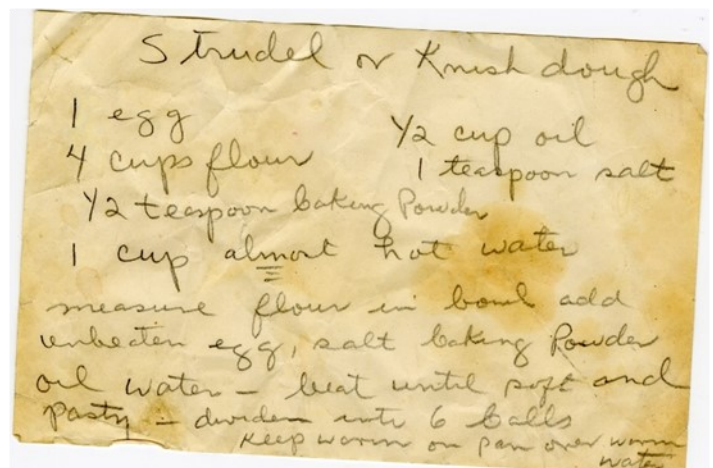 Strudel or Knish dough
1 egg
1/2 cup oil
4 cups flour
1 teaspoon salt
1/2 teaspoon baking Powder
1 cup almost hot water
measure flour in bowl add
unbeaten egg, salt baking Powder
oil water - beat until soft and
pasty - dividen into 6 balls
Keep worm on pan over worm
water